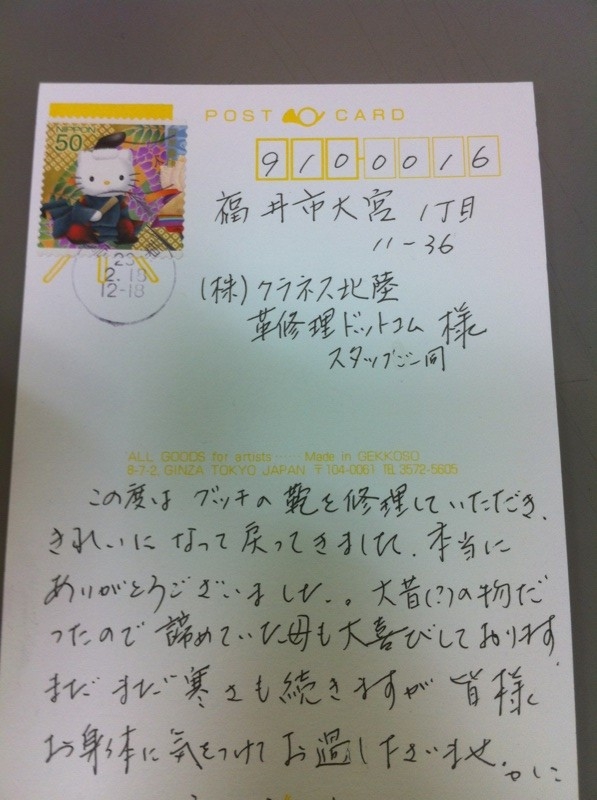 POST CARD
NIPPON
50
9100016
23
2.18
12-18
福井市大宮 1丁目
11-36
(株)クラネス北陸
革修理ドットコム 様
スタッフご一同
ALL GOODS for artists Made in GEKKOSO
8-7-2, GINZA TOKYO JAPAN 〒104-0061 TEL 3572-5605
この度は グッチの鞄を修理していただき、
きれいになって戻ってきました。本当に
ありがとうございました。。大昔(?)の物だ
ったので 諦めていた母も大喜びしております。
まだまだ寒さも続きますが 皆様
お身体に気をつけてお過し下さいませ。
かしこ